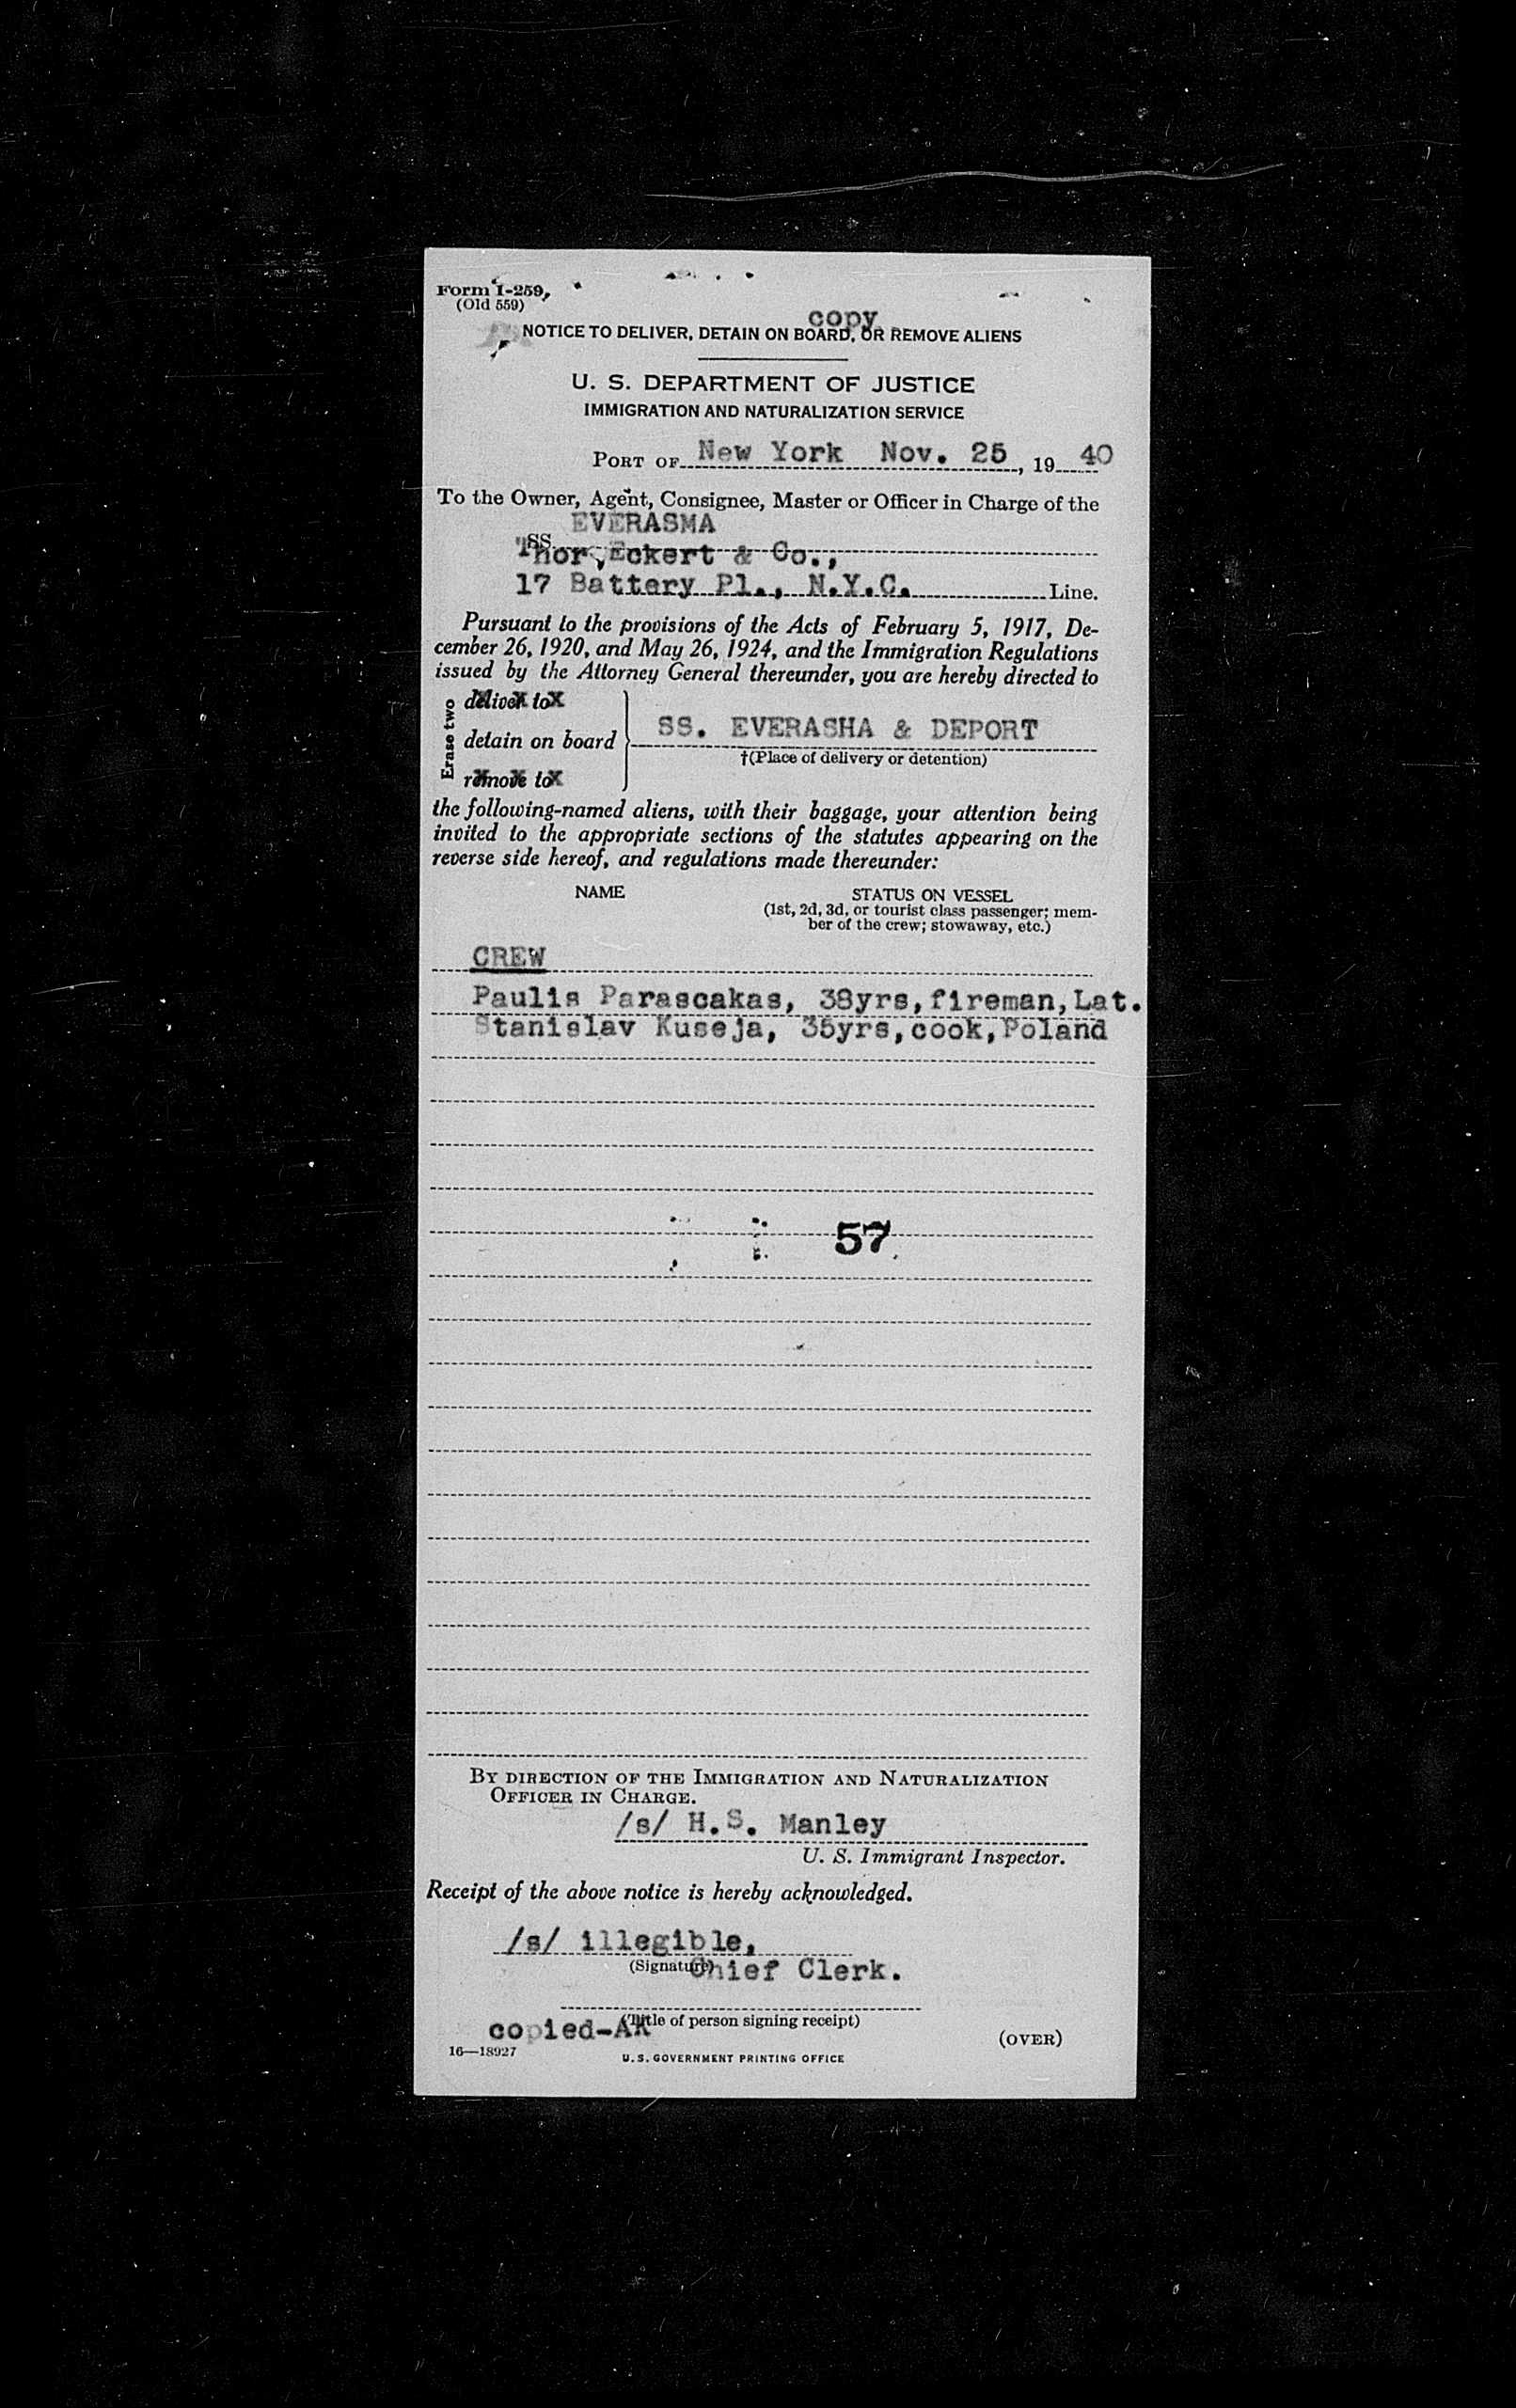 Form I-259,
(Old 559)
copy
NOTICE TO DELIVER, DETAIN ON BOARD, OR REMOVE ALIENS
U. S. DEPARTMENT OF JUSTICE
IMMIGRATION AND NATURALIZATION SERVICE
PORT OF New York Nov. 25, 1940
To the Owner, Agent, Consignee, Master or Officer in Charge of the
EVERASMA
"SS.
Thor, Eckert & Co.,
17 Battery Pl., N.Y.C. Line.
Pursuant to the provisions of the Acts of February 5, 1917, De-
cember 26, 1920, and May 26, 1924, and the Immigration Regulations
issued by the Attorney General thereunder, you are hereby directed to
Erase two
deliver to
detain on board
remove to
SS. EVERASHA & DEPORT
†(Place of delivery or detention)
the following-named aliens, with their baggage, your attention being
invited to the appropriate sections of the statutes appearing on the
reverse side hereof, and regulations made thereunder:
NAME STATUS ON VESSEL
(1st, 2d, 3d, or tourist class passenger; mem-
ber of the crew; stowaway, etc.)
CREW
Paulis Parascakas, 38yrs,fireman,Lat.
Stanislav Kuseja, 35yrs,cook,Poland
57
BY DIRECTION OF THE IMMIGRATION AND NATURALIZATION
OFFICER IN CHARGE.
/s/ H.S. Manley
U. S. Immigrant Inspector.
Receipt of the above notice is hereby acknowledged.
/s/ illegible,
(Signature)
Chief Clerk.
(Title of person signing receipt)
copied-AK
(OVER)
16—18927
U. S. GOVERNMENT PRINTING OFFICE